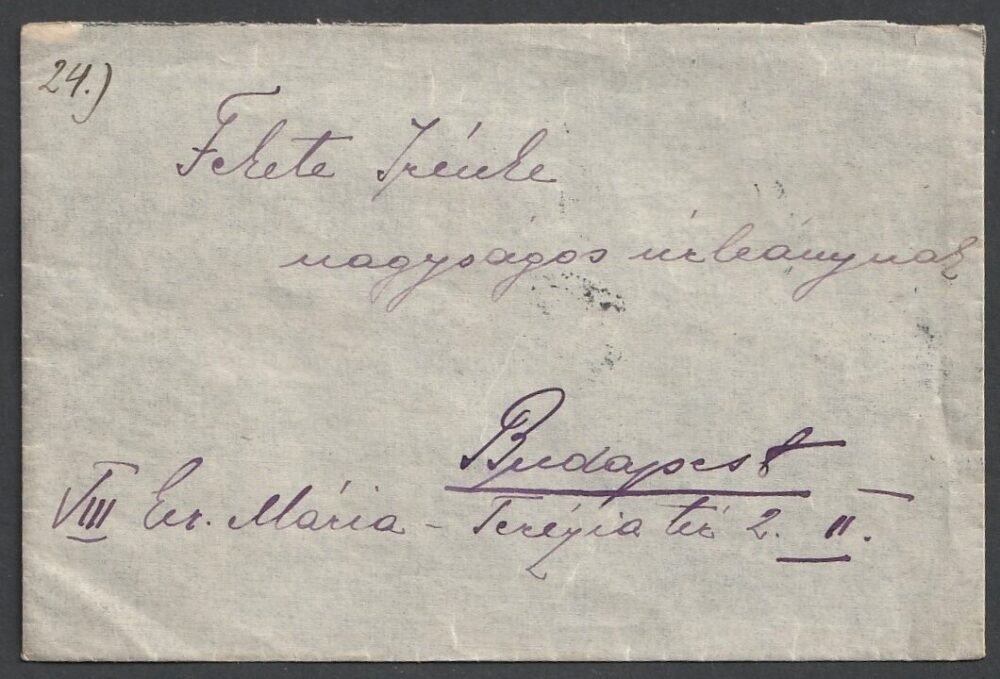 24.)
Fekete Irénke
nagyságos úrleánynak
Budapest
VIII ker. Mária - Terézia tér 2. II.